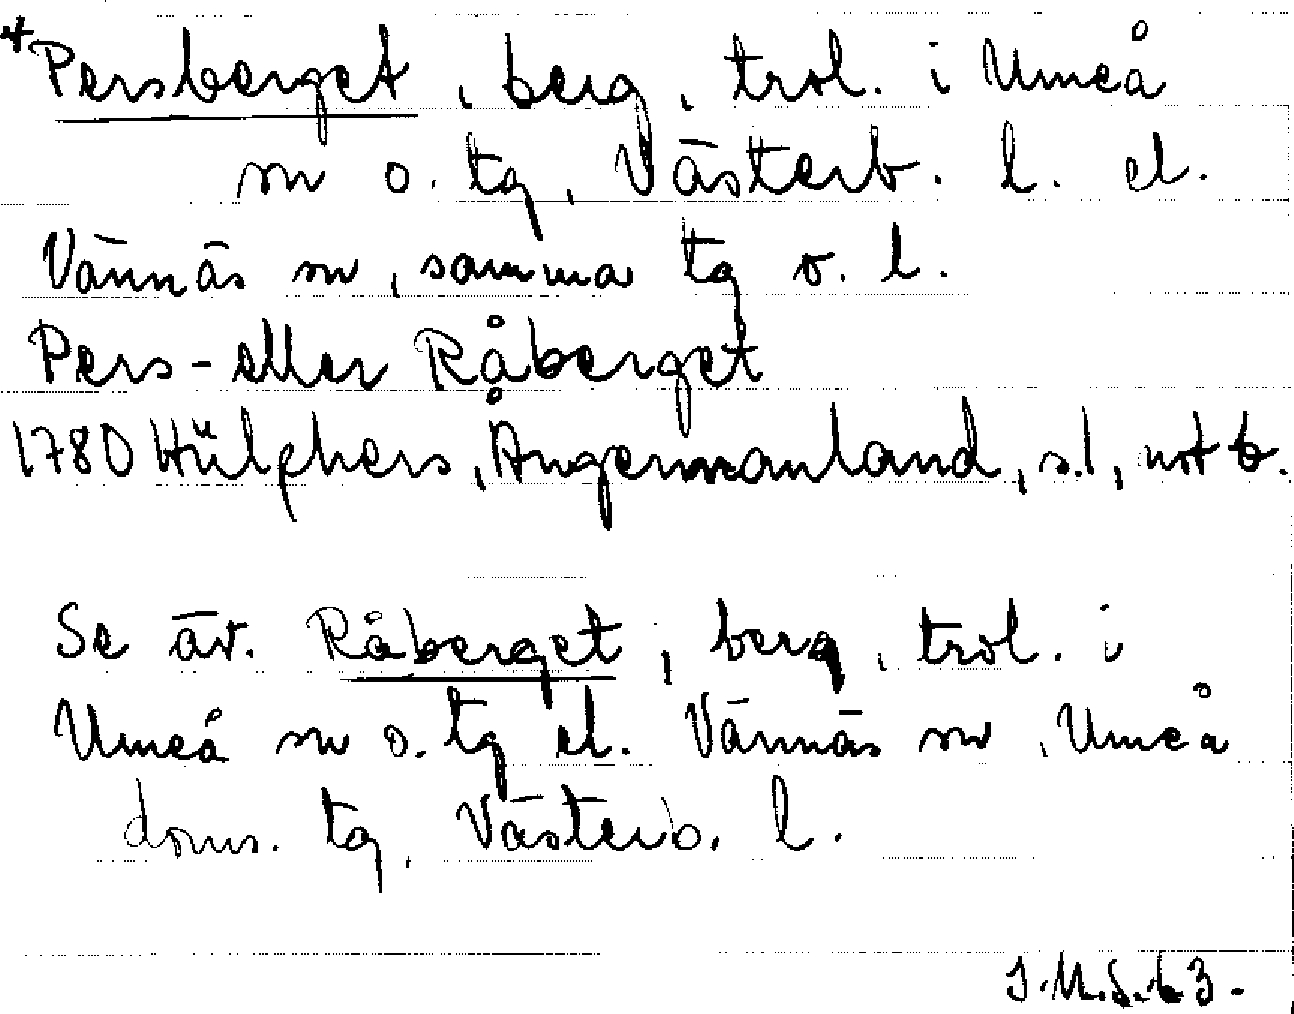 *Persberget, berg, trol. i Umeå
sn o. tg, Västerb. l. el.
Vännäs sn, samma tg o. l.
Pers- eller Råberget
1780 Hülphers, Ångermanland, s.1, not b.
Se äv. Råberget, berg, trol. i
Umeå sn o. tg el. Vännäs sn, Umeå
doms. tg, Västerb. l.
I.M.S. 63.